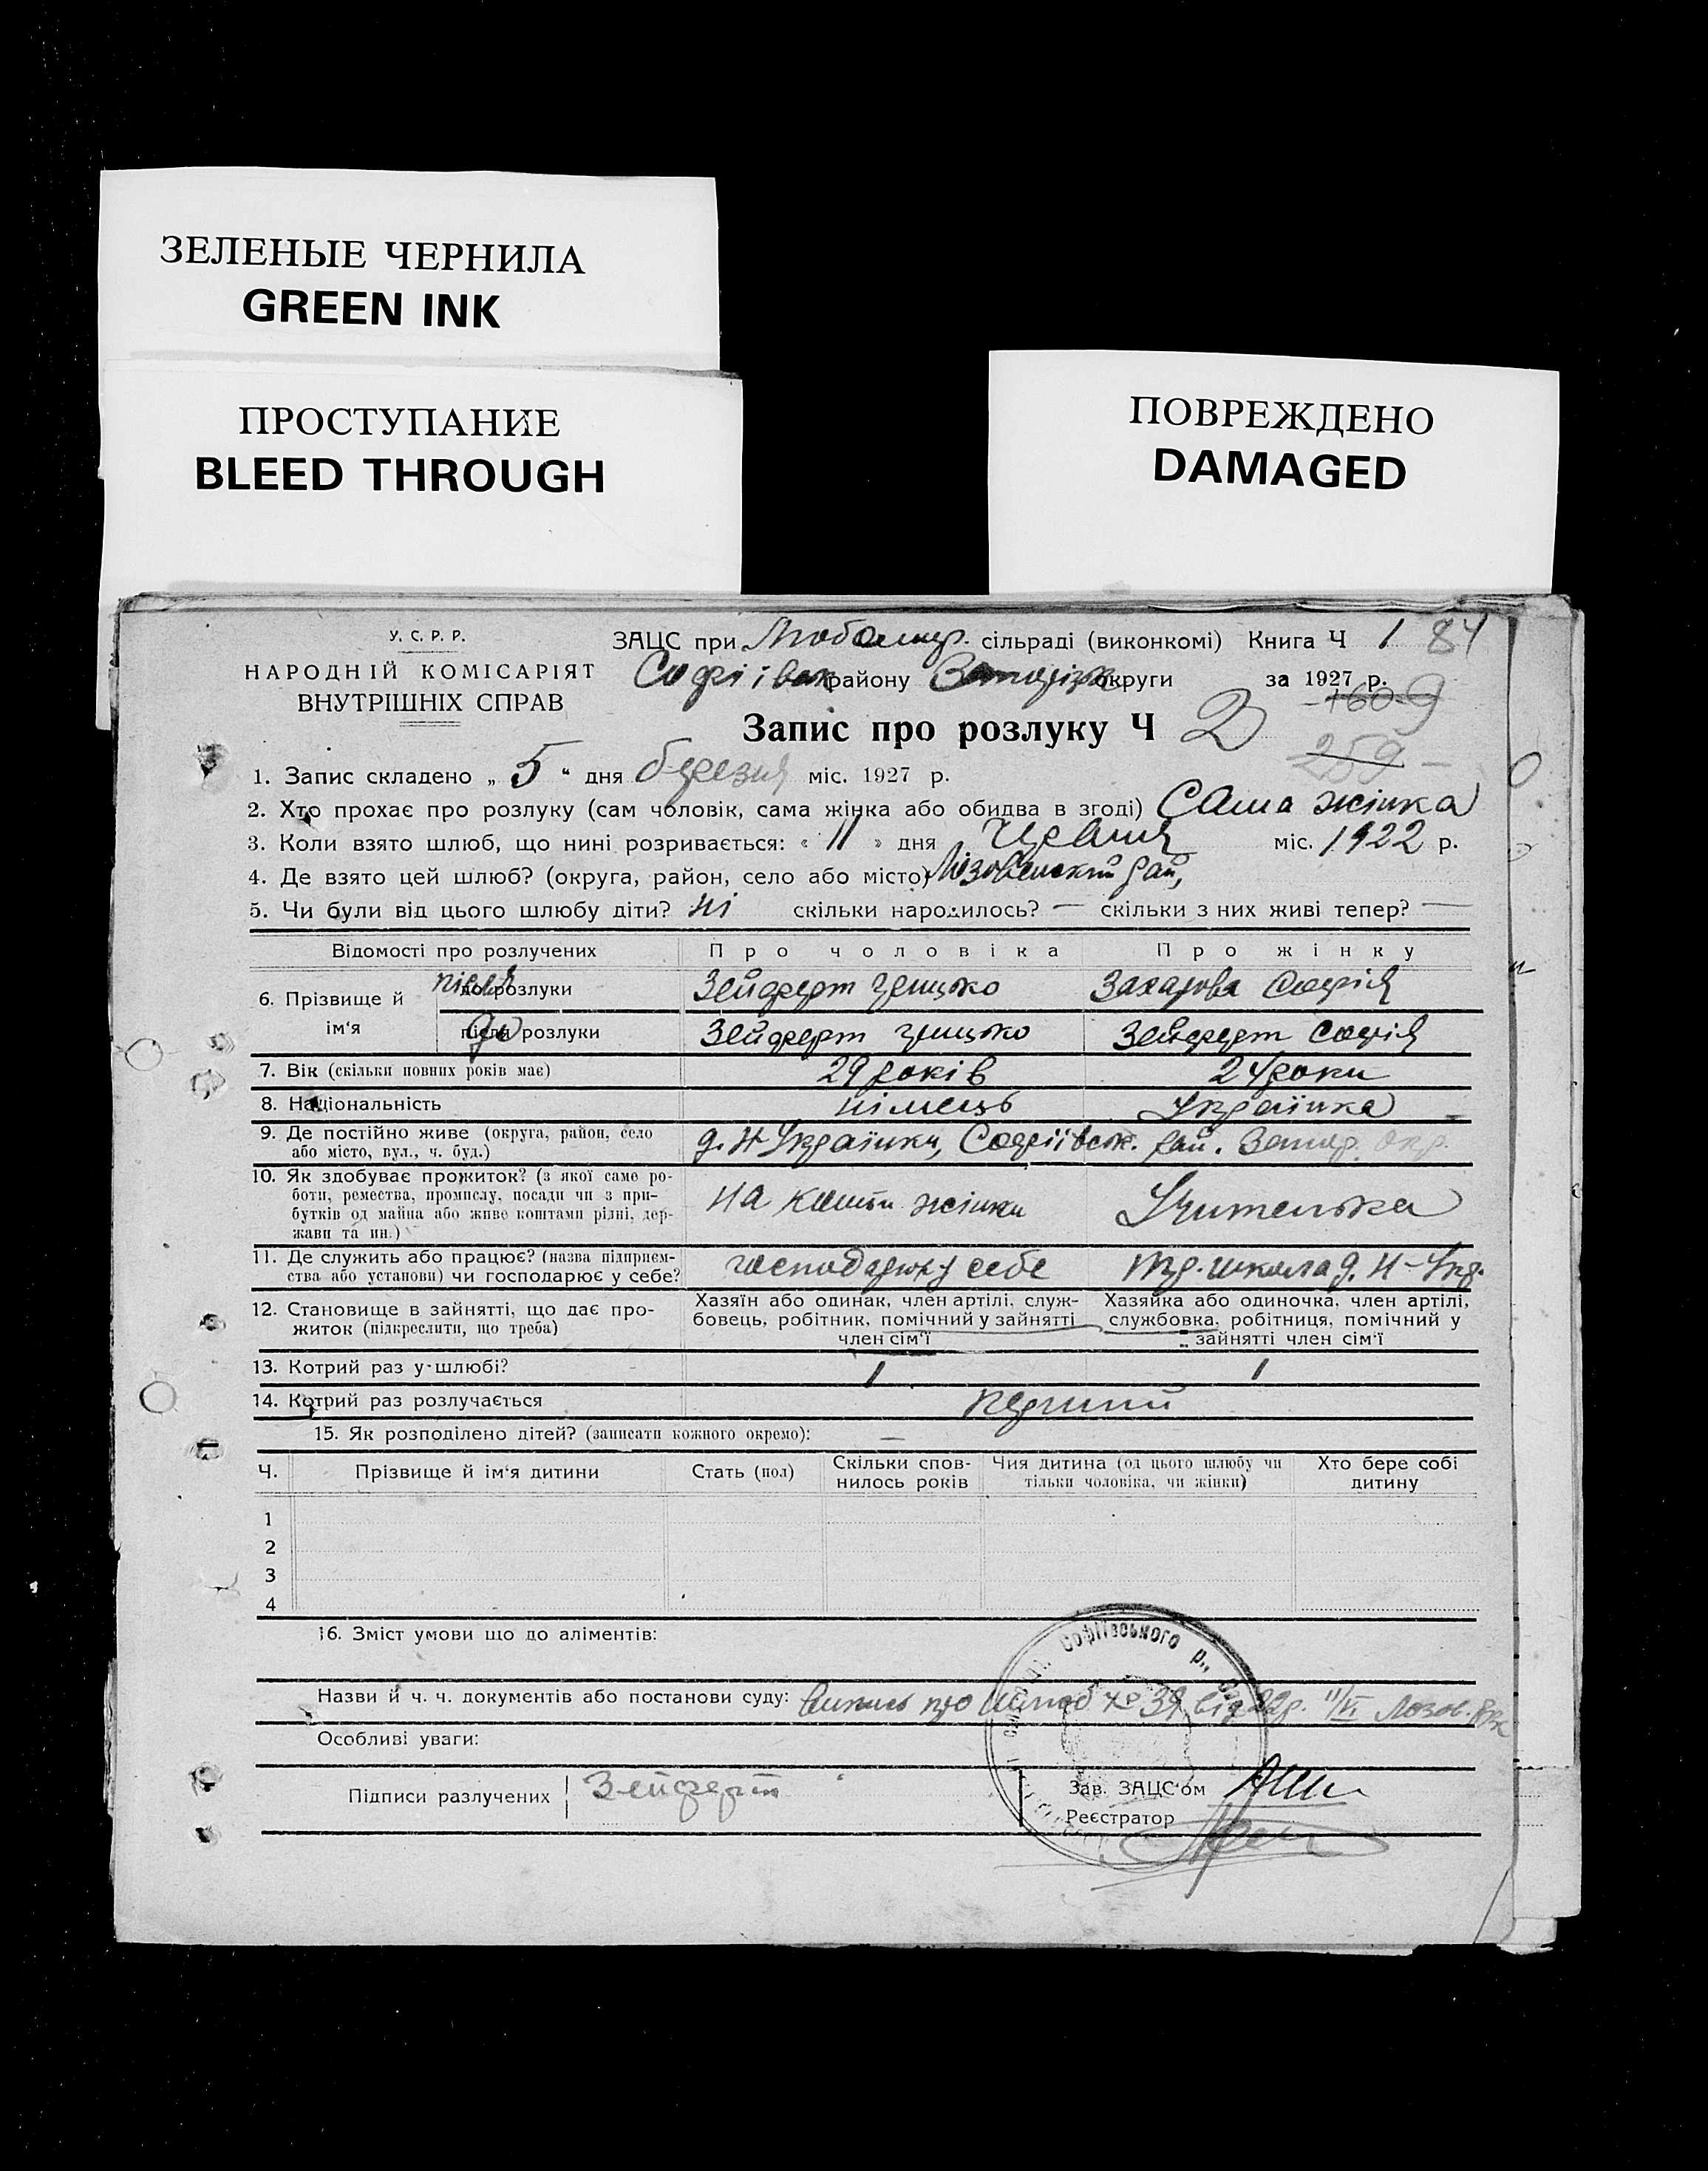 ЗЕЛЕНЫЕ ЧЕРНИЛА
GREEN INK
ПРОСТУПАНИЕ
BLEED THROUGH
ПОВРЕЖДЕНО
DAMAGED
У. С. Р. Р.
НАРОДНІЙ КОМІСАРІЯТ
ВНУТРІШНІХ СПРАВ
ЗАЦС при Любомир. сільраді (виконкомі) Книга Ч 1 84
Софіївськ району округи за 1927 р.
160 9
Запис про розлуку Ч 2
259
1. Запис складено „ 5 “ дня березня міс. 1927 р.
2. Хто прохає про розлуку (сам чоловік, сама жінка або обидва в згоді) Сама жінка
3. Коли взято шлюб, що нині розривається: « 11 » дня Червня міс. 1922 р.
4. Де взято цей шлюб? (округа, район, село або місто) рай,
5. Чи були від цього шлюбу діти? ні скільки народилось? — скільки з них живі тепер? —
Відомості про розлучених Про чоловіка Про жінку
6. Прізвище й ім'я після до розлуки Зейферт Грицько Захарова Софія
до після розлуки Зейферт Грицько Зейферт Софія
7. Вік (скільки повних років має) 29 років 24 роки
8. Національність німець Українка
9. Де постійно живе (округа, район, село або місто, вул., ч. буд.) д. Н Українки, Софіївськ. рай. Запор. окр.
10. Як здобуває прожиток? (з якої саме роботи, ремества, промислу, посади чи з прибутків од майна або живе коштами рідні, держави та ин.) На кошти жінки Учителька
11. Де служить або працює? (назва підприємства або установи) чи господарює у себе? господарює у себе Тр. школа д. Н-Укр.
12. Становище в зайнятті, що дає прожиток (підкреслити, що треба) Хазяїн або одинак, член артілі, службовець, робітник, помічний у зайнятті член сім'ї Хазяйка або одиночка, член артілі, службовка, робітниця, помічний у зайнятті член сім'ї
13. Котрий раз у шлюбі? 1 1
14. Котрий раз розлучається перший
15. Як розподілено дітей? (записати кожного окремо): —
Ч. Прізвище й ім'я дитини Стать (пол) Скільки сповнилось років Чия дитина (од цього шлюбу чи тільки чоловіка, чи жінки) Хто бере собі дитину
1
2
3
4
16. Зміст умови що до аліментів:
Софіївського р.,
Назви й ч. ч. документів або постанови суду: Випись про шлюб № 39 від 22р. 11/VI Лозов.
Особливі уваги:
Підписи разлучених Зейферт
Зав. ЗАЦС'ом
Реєстратор